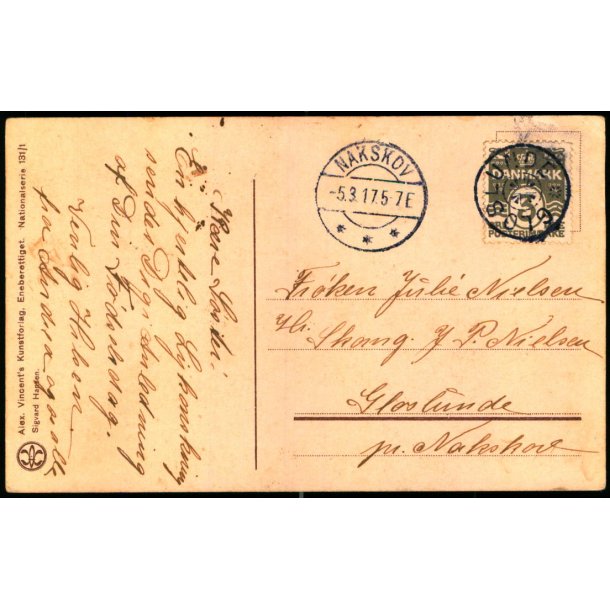 Alex. Vincent's Kunstforlag, Eneberettiget. Nationalserie 131/1
Sigvard Hansen.
Kære Søster!
En hjertelig Lykønskning
sendes Dig i Anledning
af Din Fødselsdag.
Venlig Hilsen
fra og alle
NAKSKOV
-5.3.17.5-7E
DANMARK
5
Frøken Julie Nielsen
Hr. J P. Nielsen
Gloslunde
pr. Nakskov